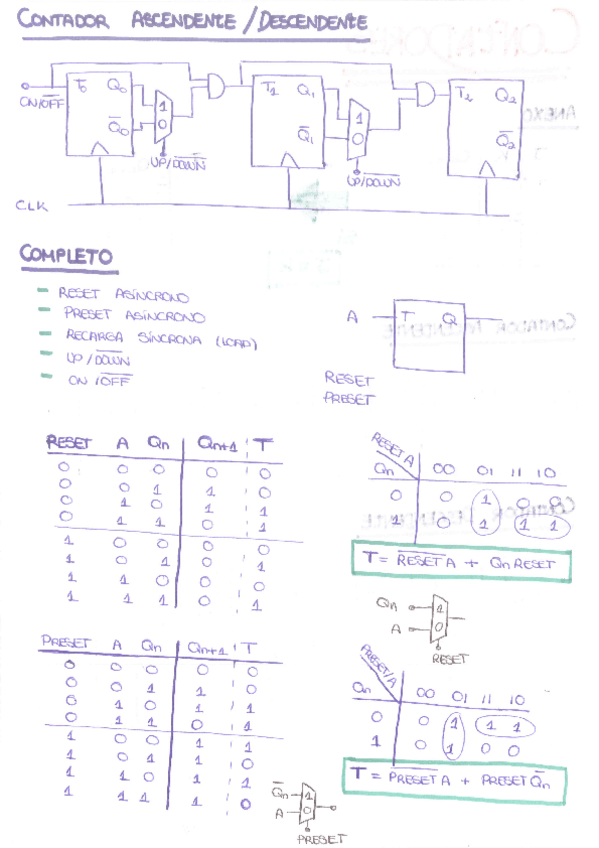 CONTADOR ASCENDENTE / DESCENDENTE
ON/OFF T₀ Q₀ 1 T₁ Q₁ 1 T₂ Q₂
Q̅₀ 0 Q̅₁ 0 Q̅₂
UP/DOWN UP/DOWN
CLK
COMPLETO
- RESET ASÍNCRONO
- PRESET ASÍNCRONO
- RECARGA SÍNCRONA (LOAD)
- UP/DOWN
- ON/OFF
A T Q
RESET
PRESET
RESET A Qn Qn+1 T
0 0 0 0 0
0 0 1 1 0
0 1 0 1 1
0 1 1 0 1
1 0 0 0 0
1 0 1 0 1
1 1 0 0 0
1 1 1 0 1
RESET A
Qn 00 01 11 10
0 0 1 0 0
1 0 1 1 1
T = R̅E̅S̅E̅T̅ A + Qn RESET
Qn 1
A 0
RESET
PRESET A Qn Qn+1 T
0 0 0 0 0
0 0 1 1 0
0 1 0 1 1
0 1 1 0 1
1 0 0 1 1
1 0 1 1 0
1 1 0 1 1
1 1 1 1 0
Q̅n 1
A 0
PRESET
PRESET/A
Qn 00 01 11 10
0 0 1 1 1
1 0 1 0 0
T = P̅R̅E̅S̅E̅T̅ A + PRESET Q̅n